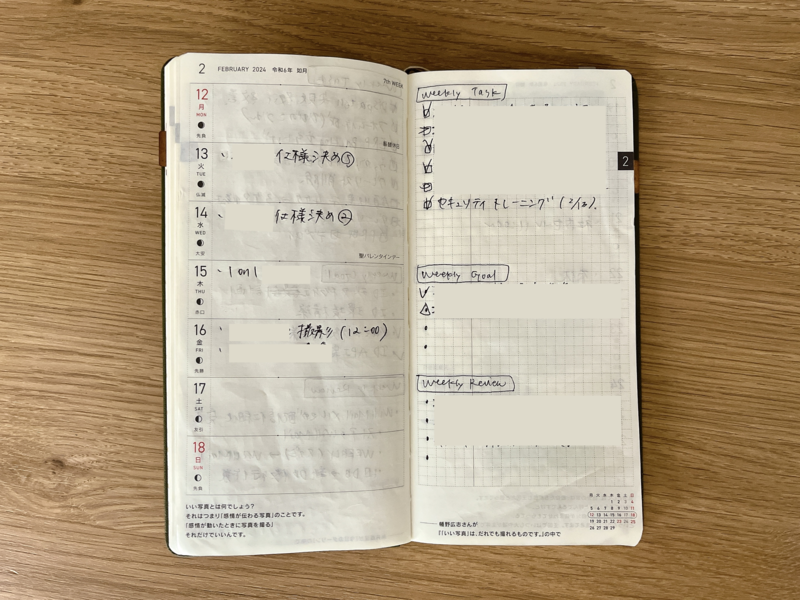 2 FEBRUARY 2024 令和6年 如月
7th WEEK
12
月
MON
先負
振替休日
13
火
TUE
仏滅
仕様決め①
14
水
WED
大安
仕様決め②
聖バレンタインデー
15
木
THU
赤口
1on1
16
金
FRI
先勝
: 撮影 (12:00)
17
土
SAT
友引
18
日
SUN
先負
いい写真とは何でしょう？
それはつまり「感情が伝わる写真」のことです。
「感情が動いたときに写真を撮る」
それだけでいいんです。
Weekly Task
セキュリティトレーニング (2/13).
2
Weekly Goal
Weekly Review
幡野広志さんが
『「いい写真」は、だれでも撮れるものです。』の中で
月 火 水 木 金 土 日
1 2 3 4
5 6 7 8 9 10 11
12 13 14 15 16 17 18
19 20 21 22 23 24 25
26 27 28 29